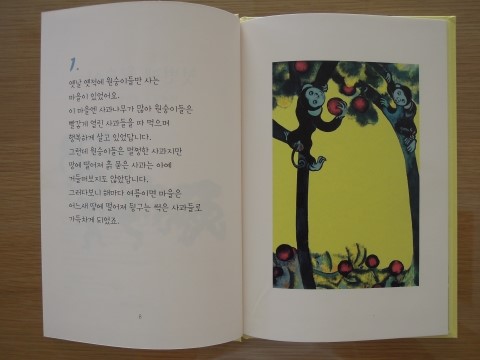 1.
옛날 옛적에 원숭이들만 사는
마을이 있었어요.
이 마을엔 사과나무가 많아 원숭이들은
빨갛게 열린 사과들을 따 먹으며
행복하게 살고 있었답니다.
그런데 원숭이들은 멀쩡한 사과지만
땅에 떨어져 흙 묻은 사과는 아예
거들떠보지도 않았답니다.
그러다보니 해마다 여름이면 마을은
어느새 땅에 떨어져 뒹구는 썩은 사과들로
가득하게 되었죠.